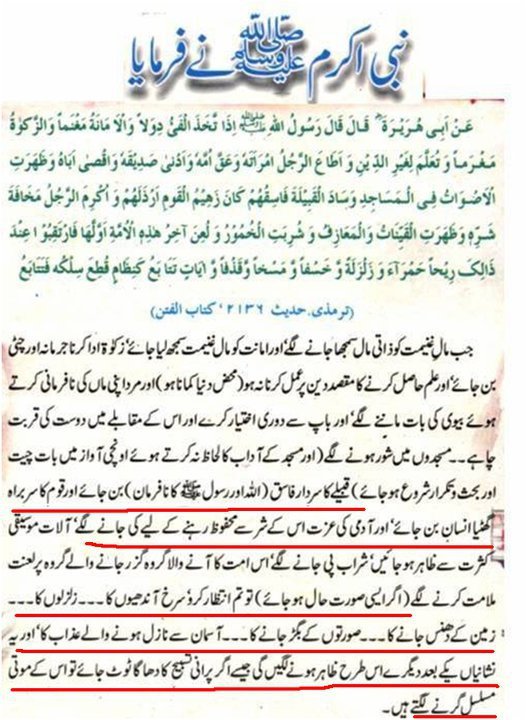 نبی اکرم صلی اللہ علیہ وسلم نے فرمایا
عَنْ اَبِی ھُرَیْرَةَ ؓ قَالَ قَالَ رَسُولُ اللهِ ﷺ اِذَا تُّخِذَ الْفَیْئُ دِوَلاً وَالْاَ مَانَةُ مَغْنَماً وَالزَّکٰوةُ
مَغْرَماً وَ تَعَلَّمَ لِغَیرِ الدِّیْنِ وَ اَطَاعَ الرَّجُلُ امْرَاَتَهُ وَعَقَّ اُمَّهُ وَاَدْنیٰ صَدِیْقَهُ وَاَقْصٰی اَبَاهُ وَظَهَرَتِ
الْاَصْوَاتُ فِی الْمَسَاجِدِ وَسَادَ الْقَبِیْلَةَ فَاسِقُهُمْ کَانَ زَهِیْمُ الْقَومِ اَرْذَلُهُمْ وَ اُکْرِمَ الرَّجُلُ مَخَافَةَ
شَرِّهٖ وَظَهَرَتِ الْقَیْنَاتُ وَالْمَعَازِفُ وَ شُرِبَتِ الْخُمُوْرُ وَ لُعِنَ آخِرُ هٰذِهِ الْاُمَّةِ اَوَّلُهَا فَارْتَقِبُوْا عِنْدَ
ذَالِکَ رِیْحاً حَمْرَآءَ وَ زَلْزَلَةً وَ خَسْفاً وَ مَسْخاً وَّقَذْفاً وَ اٰیَاتٍ تَتَا بَعُ کَنِظَامٍ قُطِعَ سِلْکُه فَتَتَابَعُ
(ترمذی۔ حدیث ۲۱۳۶، کتاب الفتن)
جب مالِ غنیمت کو ذاتی مال سمجھا جانے لگے، اور امانت کو مال غنیمت سمجھ لیا جائے، زکوٰة ادا کرنا جرمانہ اور چٹی
بن جائے، اور علم حاصل کرنے کا مقصد دین پر عمل کرنا نہ ہو (محض دنیا کمانا ہو) اور مرد اپنی ماں کی نافرمانی کرتے
ہوئے بیوی کی بات ماننے لگے، اور باپ سے دوری اختیار کرے اور اس کے مقابلے میں دوست کی قربت
چاہے۔۔ مسجدوں میں شور ہونے لگے (اور مسجد کے آداب کا لحاظ نہ کرتے ہوئے اونچی آواز میں بات چیت
اور بحث و تکرار شروع ہو جائے) قبیلے کا سردار فاسق (اللہ اور رسول ﷺ کا نافرمان) بن جائے اور قوم کا سربراہ
گھٹیا انسان بن جائے، اور آدمی کی عزت اس کے شر سے محفوظ رہنے کے لیے کی جانے لگے، آلات موسیقی
کثرت سے ظاہر ہو جائیں، شراب پی جانے لگے، اس امت کا آنے والا گروہ گزر جانے والے گروہ پر لعنت
ملامت کرنے لگے (اگر ایسی صورت حال ہو جائے) تو تم انتظار کرو سرخ آندھیوں کا۔۔۔ زلزلوں کا۔۔۔
زمین کے دھنس جانے کا۔۔۔ صورتوں کے بگڑ جانے کا۔۔۔ آسمان سے نازل ہونے والے عذاب کا، اور یہ
نشانیاں یکے بعد دیگرے اس طرح ظاہر ہونے لگیں گی جیسے اگر پرانی تسبیح کا دھاگا ٹوٹ جائے تو اس کے موتی
مسلسل گرنے لگتے ہیں۔